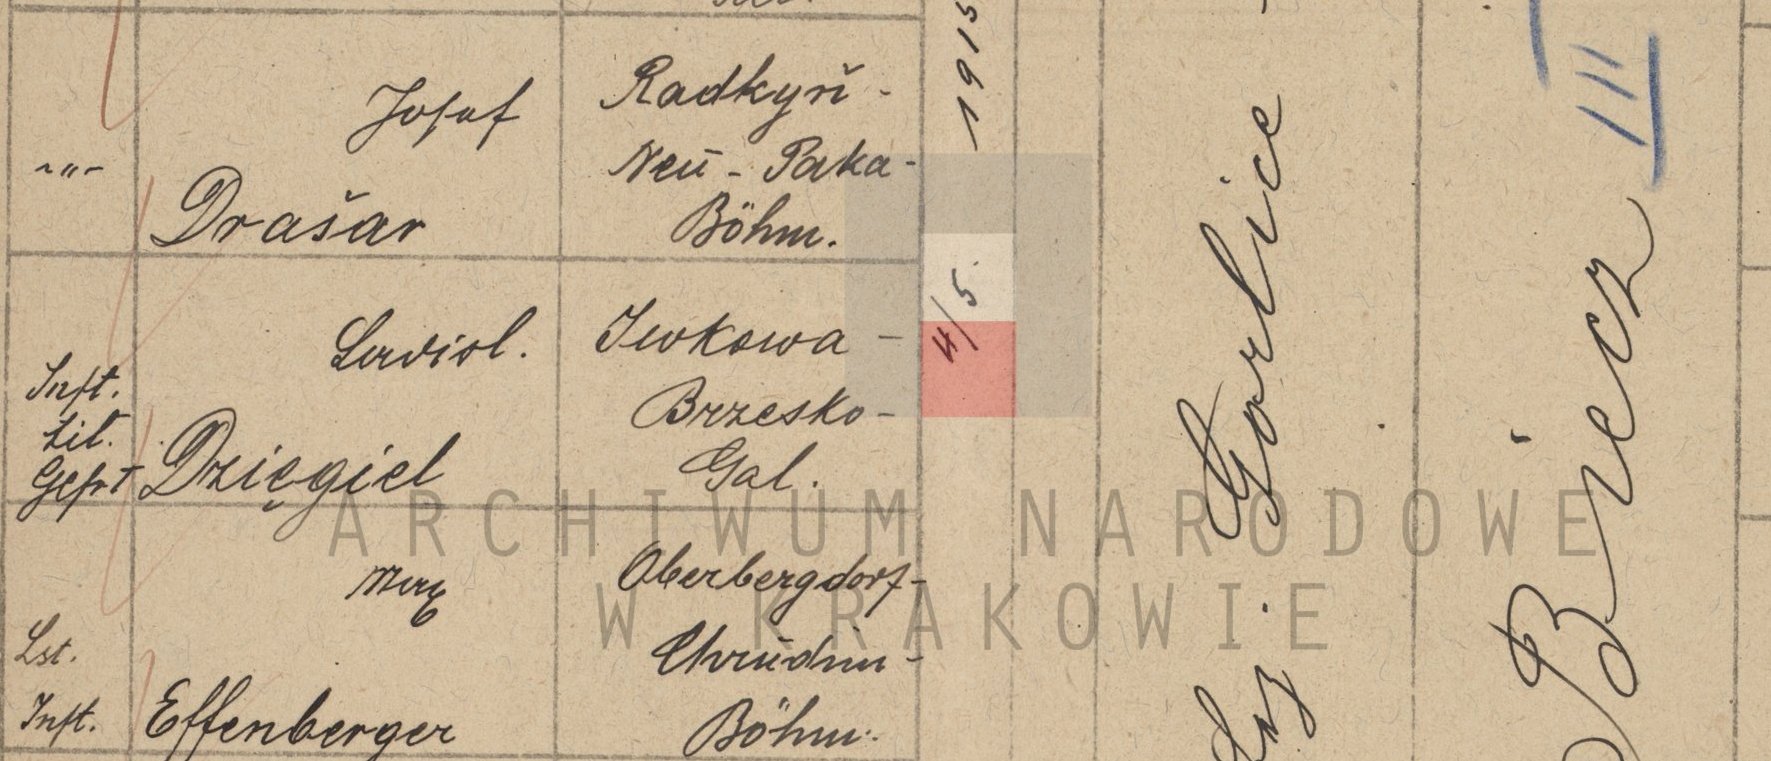 -"-
Josef
Drašar
Radkyň -
Neu - Paka -
Böhm.
1915
Inft.
tit.
Gefrt
Ladisl.
Dzięgiel
Iwkowa -
Brzesko -
Gal.
4/5.
Lst.
Inft.
Max
Effenberger
Oberbergdorf -
Chrudim -
Böhm.
Gorlice -
Biecz III
ARCHIWUM NARODOWE
W KRAKOWIE